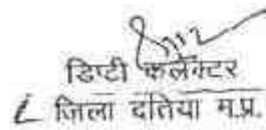 डिप्टी कलेक्टर
जिला दतिया म.प्र.